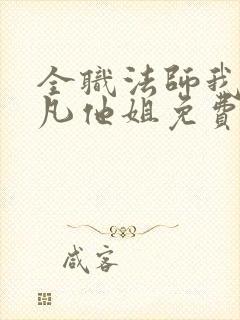 全職法師我
凡他姐免費
咸客